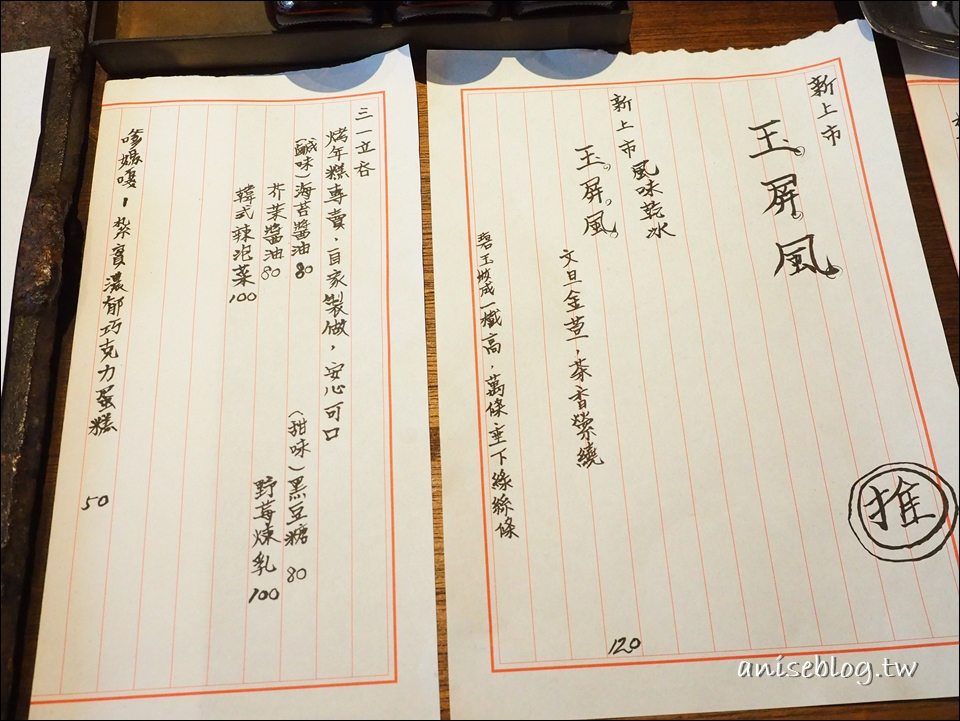 新上市
玉。屏。風。
推
新上市風味乾冰 120
玉。屏。風。
文旦金萱，茶香縈繞
碧玉妝成一樹高，萬條垂下綠絲條
三一立吞
烤年糕專賣，自家製做，安心可口
(鹹味)海苔醬油 80
芥茉醬油 80
韓式辣泡菜 100
(甜味)黑豆糖 80
野莓煉乳 100
紮實濃郁巧克力蛋糕 50
aniseblog.tw